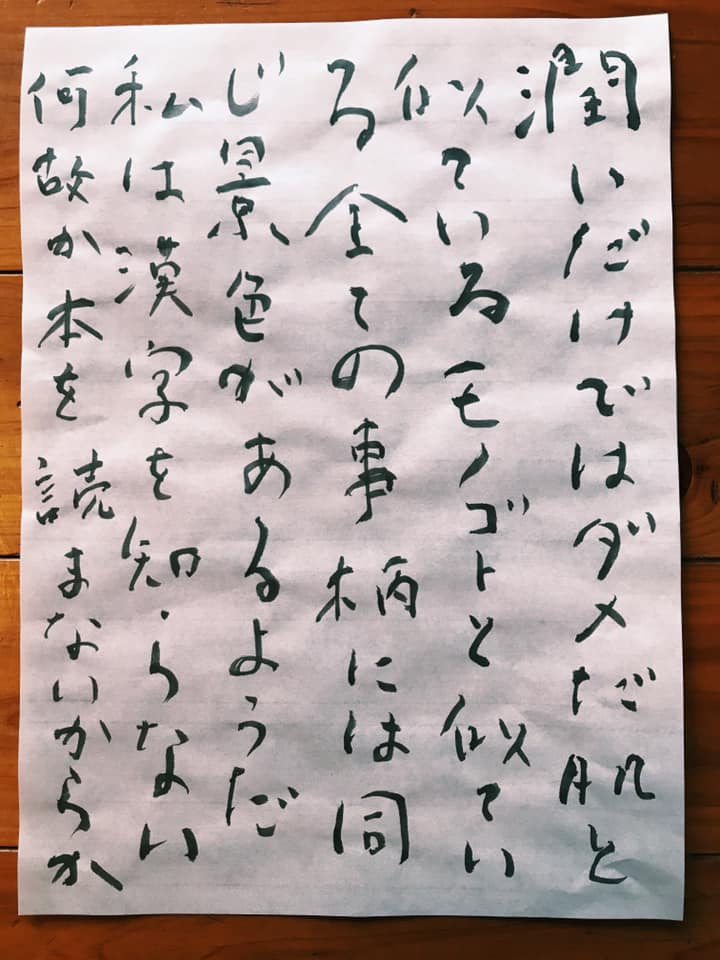 潤いだけではダメだ肌と
似ているモノゴトと似てい
る全ての事柄には同
じ景色があるようだ
私は漢字を知らない
何故か本を読まないからか